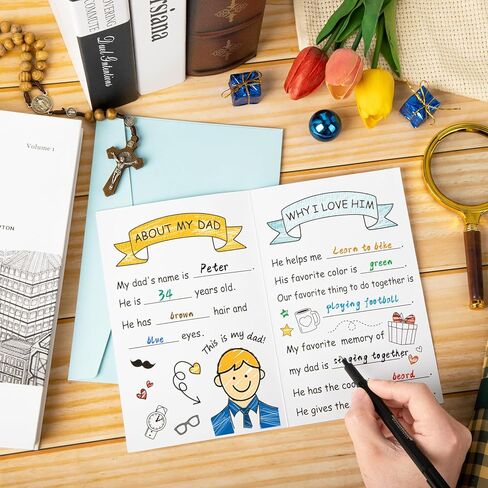 COMMUTE
Duel Gntentions
rsiana
Volume 1
PTON
ABOUT MY DAD
My dad's name is Peter.
He is 34 years old.
He has brown hair and
blue eyes.
This is my dad!
WHY I LOVE HIM
He helps me Learn to bike.
His favorite color is green.
Our favorite thing to do together is
playing football.
My favorite memory of
my dad is singing together.
He has the coo beard.
He gives the